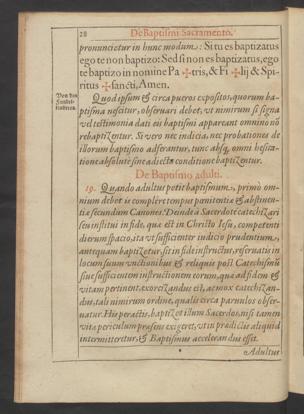 28 De Baptismi Sacramento.
pronuncietur in hunc modum: Si tu es baptizatus
ego te non baptizo: Sed si non es baptizatus, ego
te baptizo in nomine Pa ✠ tris, & Fi ✠ lij & Spi-
ritus ✠ sancti, Amen.
Von den
Fundel-
kindern.
Quod ipsum & circa pueros expositos, quorum ba-
ptisma nescitur, observari debet, ut nimirum si signa
vel testimonia dati eis baptismi appareant omnino nõ
rebaptizentur. Si vero nec indicia, nec probationes de
illorum baptismo adferantur, tunc absq, omni hæsita-
tione absolute sine adiecta conditione baptizentur.
De Baptismo adulti.
19. Quando adultus petit baptismum, primò om-
nium debet is complere tempus pœnitentiæ & abstinen-
tiæ secundum Canones: Deinde à Sacerdote catechizari
seu institui in fide, quæ est in Christo Iesu, competenti
dierum spacio, ita ut sufficienter iudicio prudentium,
antequam baptizetur, sit in fide instructus, reservatis in
locum suum unctionibus & reliquis post Catechismũ
sive sufficientem instructionem eorum, quæ ad fidem &
vitam pertinent, exorcizandus est, ac mox catechizan-
dus, tali nimirum ordine, qualis circa parvulos obser-
vatur. His peractis, baptizet illum Sacerdos, nisi tamen
vitæ periculum præsens exigeret, ut in prædictis aliquid
intermitteretur, & Baptismus accelerandus esset.
Adultus